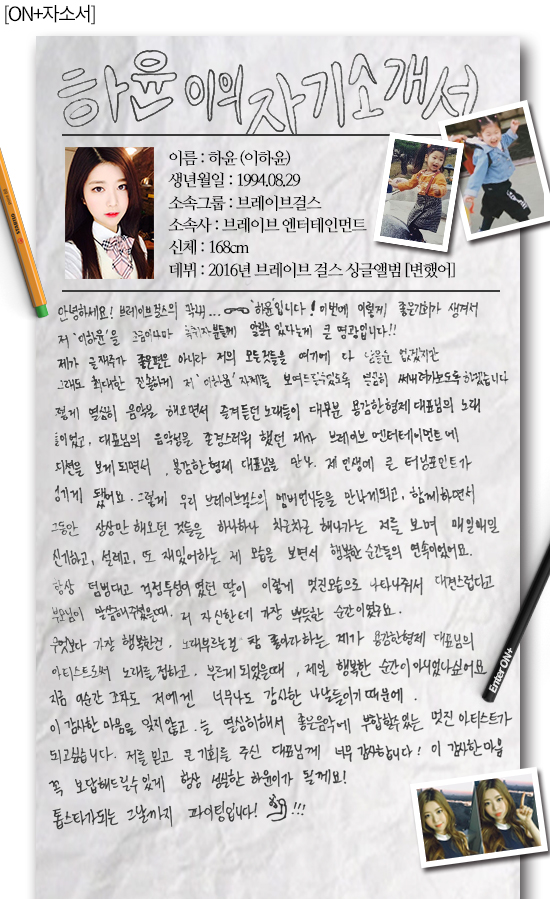 [ON+자소서]
하윤이의 자기소개서
이름 : 하윤 (이하윤)
생년월일 : 1994.08.29
소속그룹 : 브레이브걸스
소속사 : 브레이브 엔터테인먼트
신체 : 168cm
데뷔 : 2016년 브레이브 걸스 싱글앨범 [변했어]
안녕하세요! 브레이브걸스의 막내... '하윤'입니다! 이번에 이렇게 좋은기회가 생겨서
저 '이하윤'을 조금이나마 독자분들께 알릴수 있다는게 큰 영광입니다!!
제가 글재주가 좋은편은 아니라 저의 모든것들을 여기에 다 담을순 없겠지만
그래도 최대한 진솔하게 저 '이하윤' 자체를 보여드릴수있도록 열심히 써내려가보도록하겠습니다
짧게 열심히 음악을 해오면서 즐겨듣던 노래들이 대부분 용감한형제 대표님의 노래
들이었고, 대표님의 음악성을 존경스러워 했던 제가 브레이브 엔터테인먼트에
오디션을 보게 되면서, 용감한형제 대표님을 만나, 제 인생에 큰 터닝포인트가
생기게 됐어요. 그렇게 우리 브레이브걸스의 멤버언니들을 만나게되고, 함께하면서
그동안 상상만 해오던 것들을 하나하나 차근차근 해나가는 저를 보며 매일매일
신기하고, 설레고, 또 재밌어하는 제 모습을 보면서 행복한 순간들의 연속이었어요.
항상 덤벙대고 걱정투성이였던 딸이 이렇게 멋진모습으로 나타나줘서 대견스럽다고
부모님이 말씀해주셨을때, 저 자신한테 가장 뿌듯한 순간이였구요.
무엇보다 가장 행복한건, 노래부르는걸 참 좋아라하는 제가 용감한형제 대표님의
아티스트로써 노래를 접하고, 부르게 되었을때, 제일 행복한 순간이 아니었나싶어요
지금 이순간 조차도 저에겐 너무나도 감사한 나날들이기 때문에.
이 감사한 마음을 잊지않고, 늘 열심히해서 좋은음악에 부합할수있는 멋진 아티스트가
되고싶습니다. 저를 믿고 큰 기회를 주신 대표님께 너무 감사합니다! 이 감사한마음
꼭 보답해드릴수 있게 항상 성실한 하윤이가 될게요!
톱스타가되는 그날까지 파이팅입니다! !!!
Enter ON+